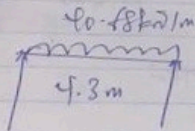 40.68kN/m
4.3m